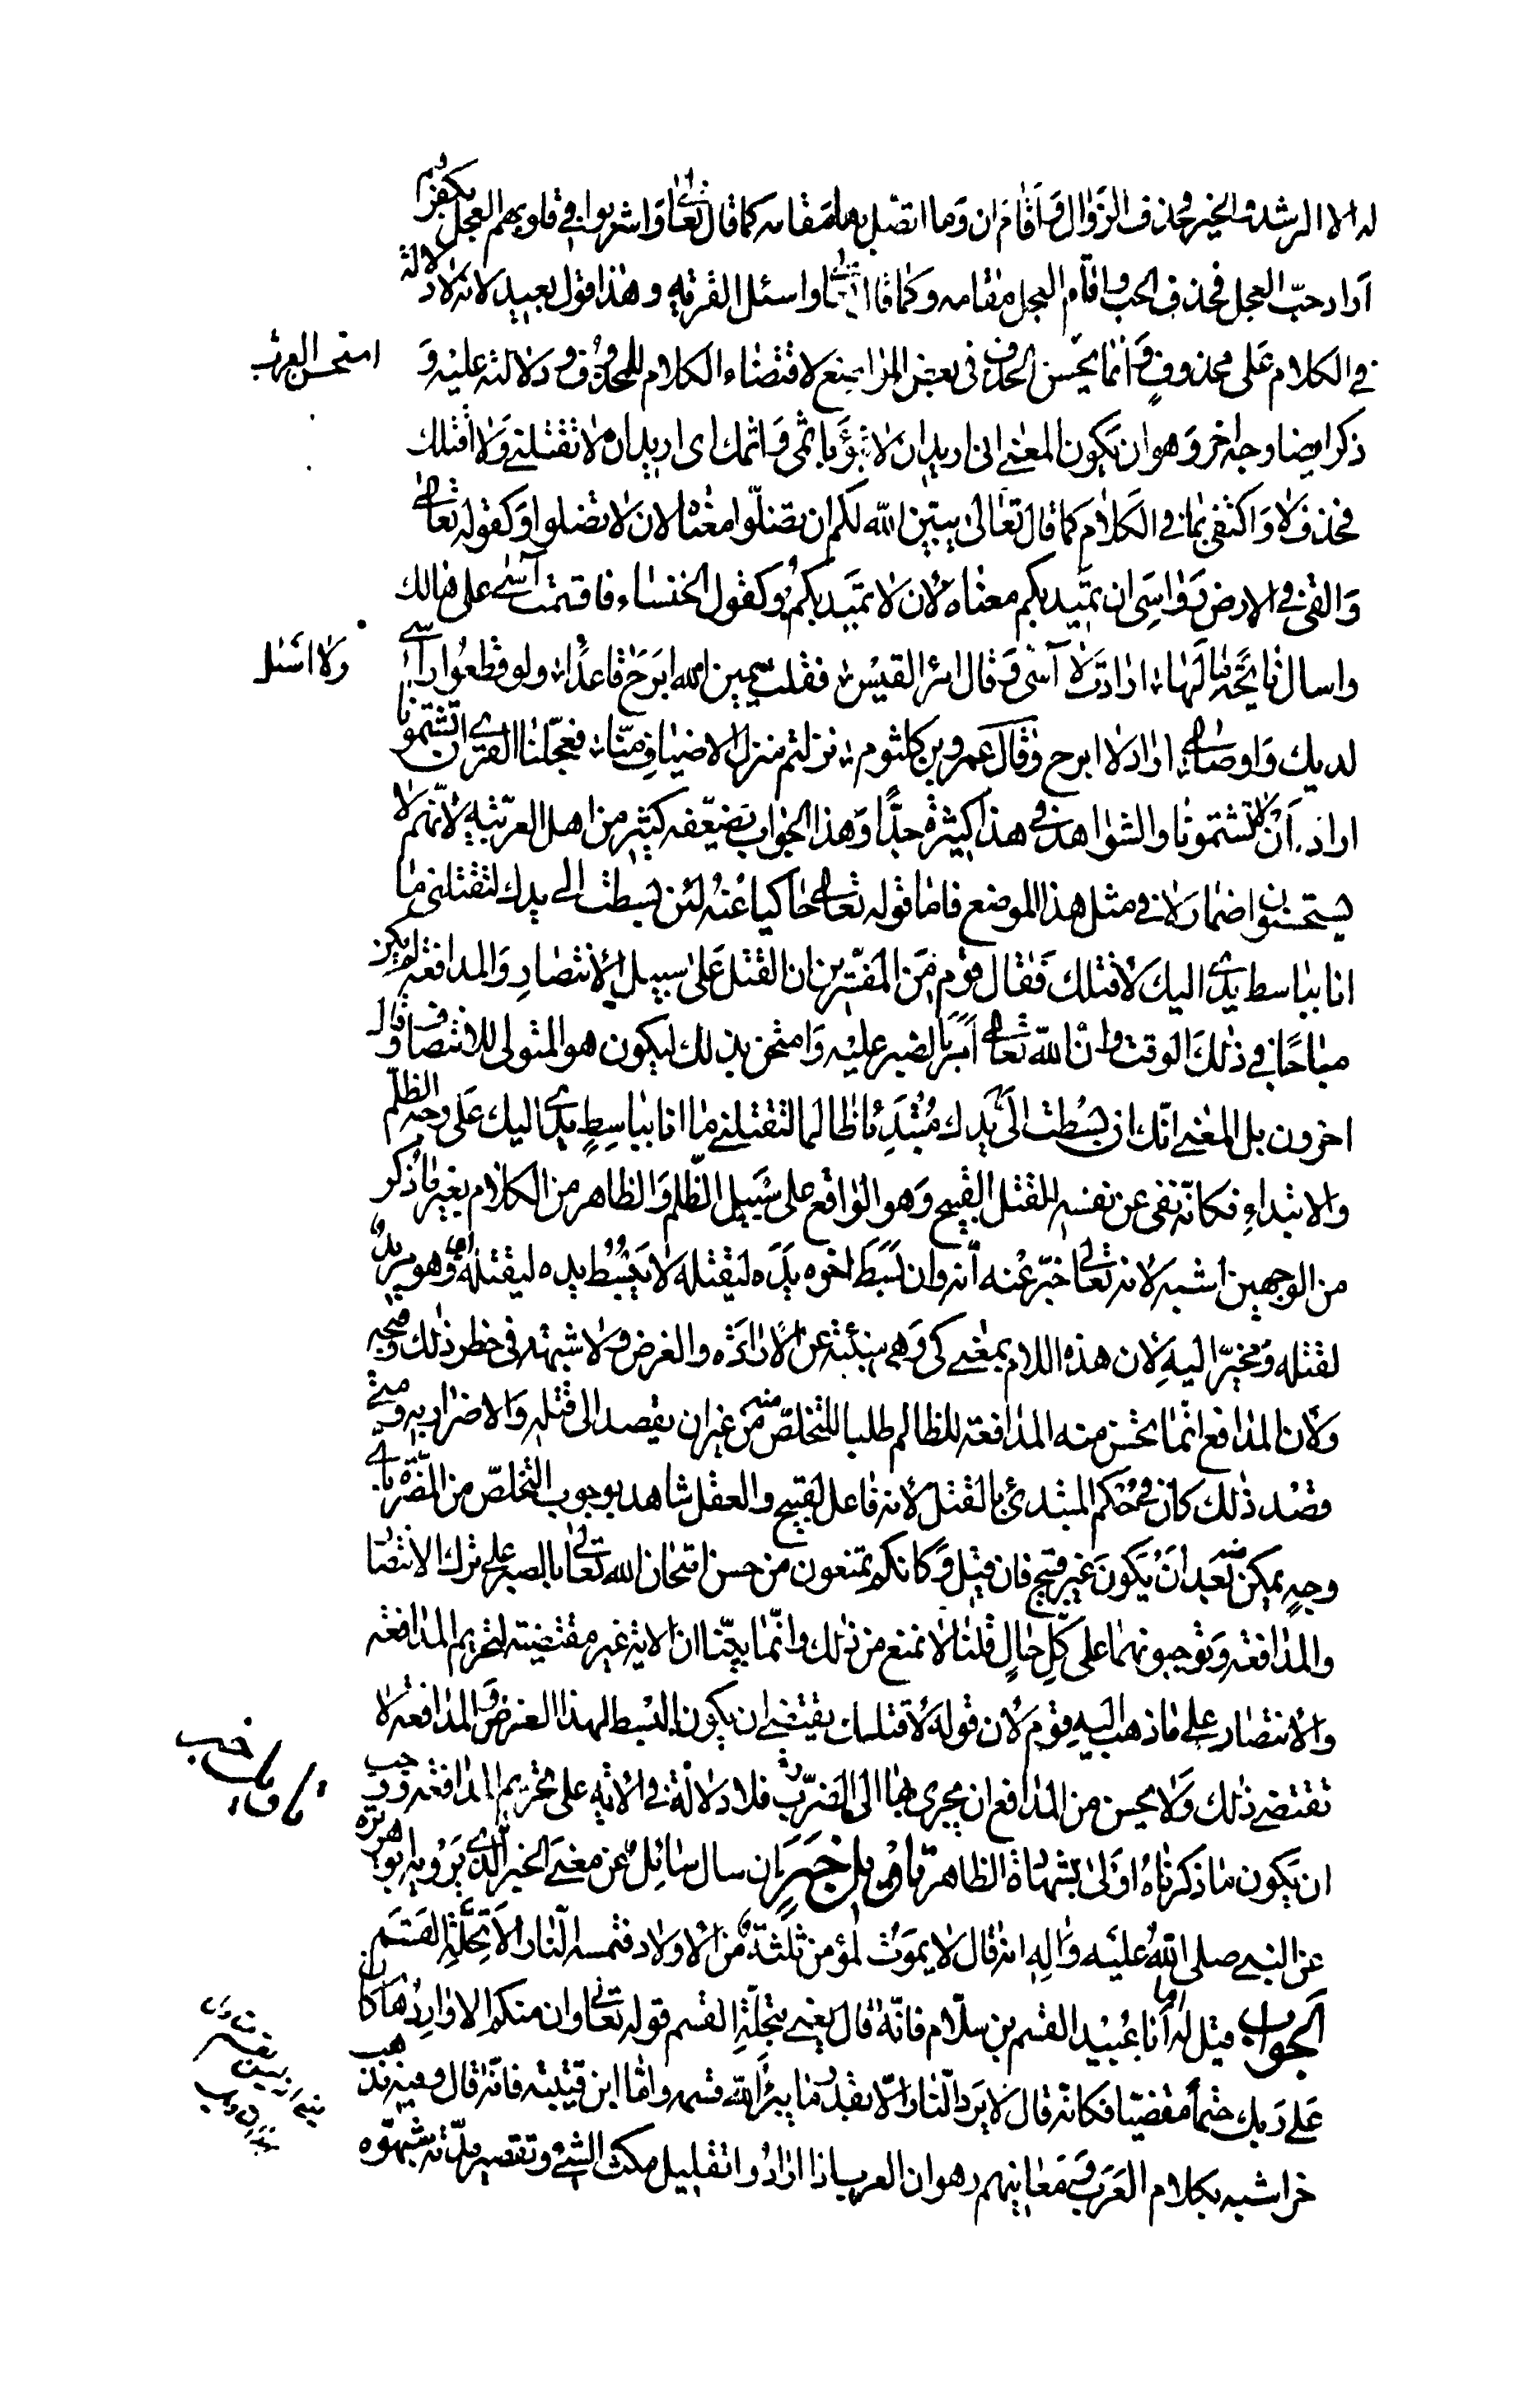 له الا الرشد والخير فحذف الزوال واقام ان وما اتصل بها مقامه كما قال تعالى واشربوا في قلوبهم العجل بكفرهم
اراد حبّ العجل فحذف الحب واقام العجل مقامه وكما قال تعالى واسئل القرية وهذا قول بعيد لانه لا دلالة
في الكلام على محذوفٍ وانما يحسن الحذف في بعض المواضع لاقتضاء الكلام للمحذوف ودلالته عليه و
استحسن العرب
ذكر ايضا وجه اخر وهو ان يكون المعنى اني اريد ان لا تبوء باثمى واثمك اى اريد ان لا تقتلنى ولا اقتلك
فحذف لا واكتفى بما في الكلام كما قال تعالى يبيّن الله لكم ان تضلّوا معناه لان لا تضلوا وكقوله تعالى
والقى في الارض رواسى ان تميد بكم معناه لان لا تميد بكم وكقول الخنساء فاقسمت آسى على هالك
واسال نائحة مالها اراد لا آسى وقال امرء القيس فقلت يمين الله ابرح قاعدًا ولو قطعوا رأسى
ولا اسئل
لديك واوصالى اراد لا ابرح وقال عمرو بن كلثوم نزلتم منزل الاضياف منّا فعجّلنا القرى ان تشتمونا
اراد ان لا تشتمونا والشواهد في هذا كثيرة جدًّا وهذا الجواب يضعّفه كثير من اهل العربيّة لانّهم لا
يستحسنون اضمار لا في مثل هذا الموضع فاما قوله تعالى حاكيا عنه لئن بسطت الى يدك لتقتلنى ما
انا بباسط يدى اليك لاقتلك فقال قوم من المفسّرين ان القتل على سبيل الانتصار والمدافعة لم يكن
مباحًا في ذلك الوقت وان الله تعالى امر بالصبر عليه وامتحن بذلك ليكون هو المتولى للانتصاف وقال
اخرون بل المعنى انّك ان بسطت الىّ يدك مبتدئا ظالما لتقتلنى ما انا بباسط يدى اليك على وجه الظلم
والابتداء فكانّه نفى عن نفسه القتل القبيح وهو الواقع على سبيل الظلم والظاهر من الكلام بغير ما ذكر
من الوجهين اشبه لانه تعالى خبّر عنه انه وان بسط اخوه يده ليقتله لا يبسط يده ليقتله اى وهو مريد
لقتله ومخيرّا اليه لان هذه اللام بمعنى كى وهى منبئة عن الارادة والغرض ولا شبهة في حظر ذلك وقبحه
ولان المدافع انّما يحسن منه المدافعة للظالم طلبا للتخلّص منه من غير ان يقصد الى قتله والاضرار به ومتى
قصد ذلك كان في حكم المبتدئ بالقتل لانه فاعل لقبيح والعقل شاهد بوجوب التخلّص من المضرّة باى
وجه يمكن منه بعد ان يكون غير قبيح فان قيل وكانكم تمنعون من حسن امتحان الله تعالى بالصبر على ترك الانتصار
والمدافعة وتوجبونهما على كلّ حال قلنا لا نمنع من ذلك وانّما بيّنا ان الاية غير مقتضية لتحريم المدافعة
والانتصار على ما ذهب اليه قوم لان قوله لاقتلك يقتضى ان يكون البسط لهذا الغرض والمدافعة لا
تقتضى ذلك ولا يحسن من المدافع ان يجرى بها الى الضرر فلا دلالة في الاية على تحريم المدافعة ووجب
تاويل خبر
ان يكون ما ذكرناه اولى بشهادة الظاهر تاويل خبر ان سال سائل عن معنى الخبر الذى يرويه ابو هريرة
عن النبى صلى الله عليه واله انه قال لا يموت لمؤمن ثلثة من الاولاد فتمسه النار الا تحلّة القسم
الجواب قيل له اما ابا عبيد القسم بن سلّام فانّه قال يعنى بتحلّة القسم قوله تعالى وان منكم الا واردها كان
على ربك حتما مقضيّا فكانه قال لا يرد النار الّا بقدر ما يبرّ الله قسمه واما ابن قتيبة فانّه قال وفيه مذهب
خر اشبه بكلام العرب ومعانيهم وهو ان العرب اذا ارادوا تقليل مكث الشئ وتقصير مدّته شبهّوه